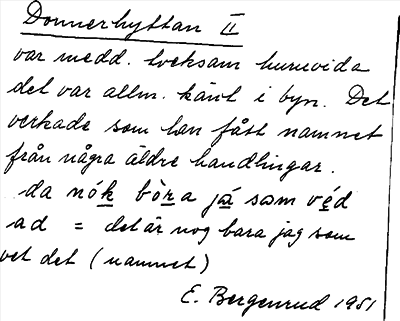 Donnerhyttan II
var medd. tveksam huruvida
det var allm. känt i byn. Det
verkade som han fått namnet
från några äldre handlingar.
da nók bòra já som véd
ad = det är nog bara jag som
vet det (namnet)
E. Bergenrud 1951